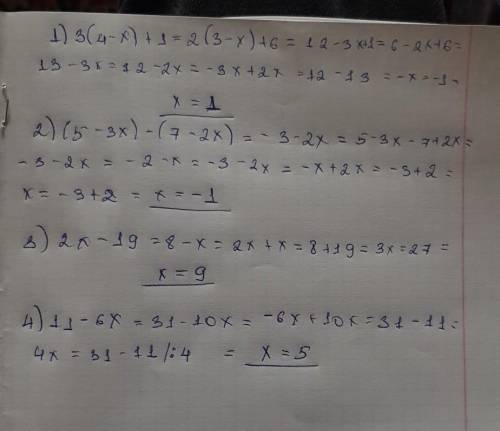 1) 3(4-x)+1=2(3-x)+6= 12-3x+1=6-2x+6=
13-3x=12-2x=-3x+2x =12-13 =-x=-1=
x=1
2) (5-3x)-(7-2x)=-3-2x=5-3x-7+2x=
-3-2x = -2-x=-3-2x=-x+2x=-3+2=
x=-3+2= x=-1
3) 2x-19=8-x=2x+x=8+19=3x=27=
x=9
4) 11-6x=31-10x=-6x+10x=31-11=
4x=31-11/:4 = x=5